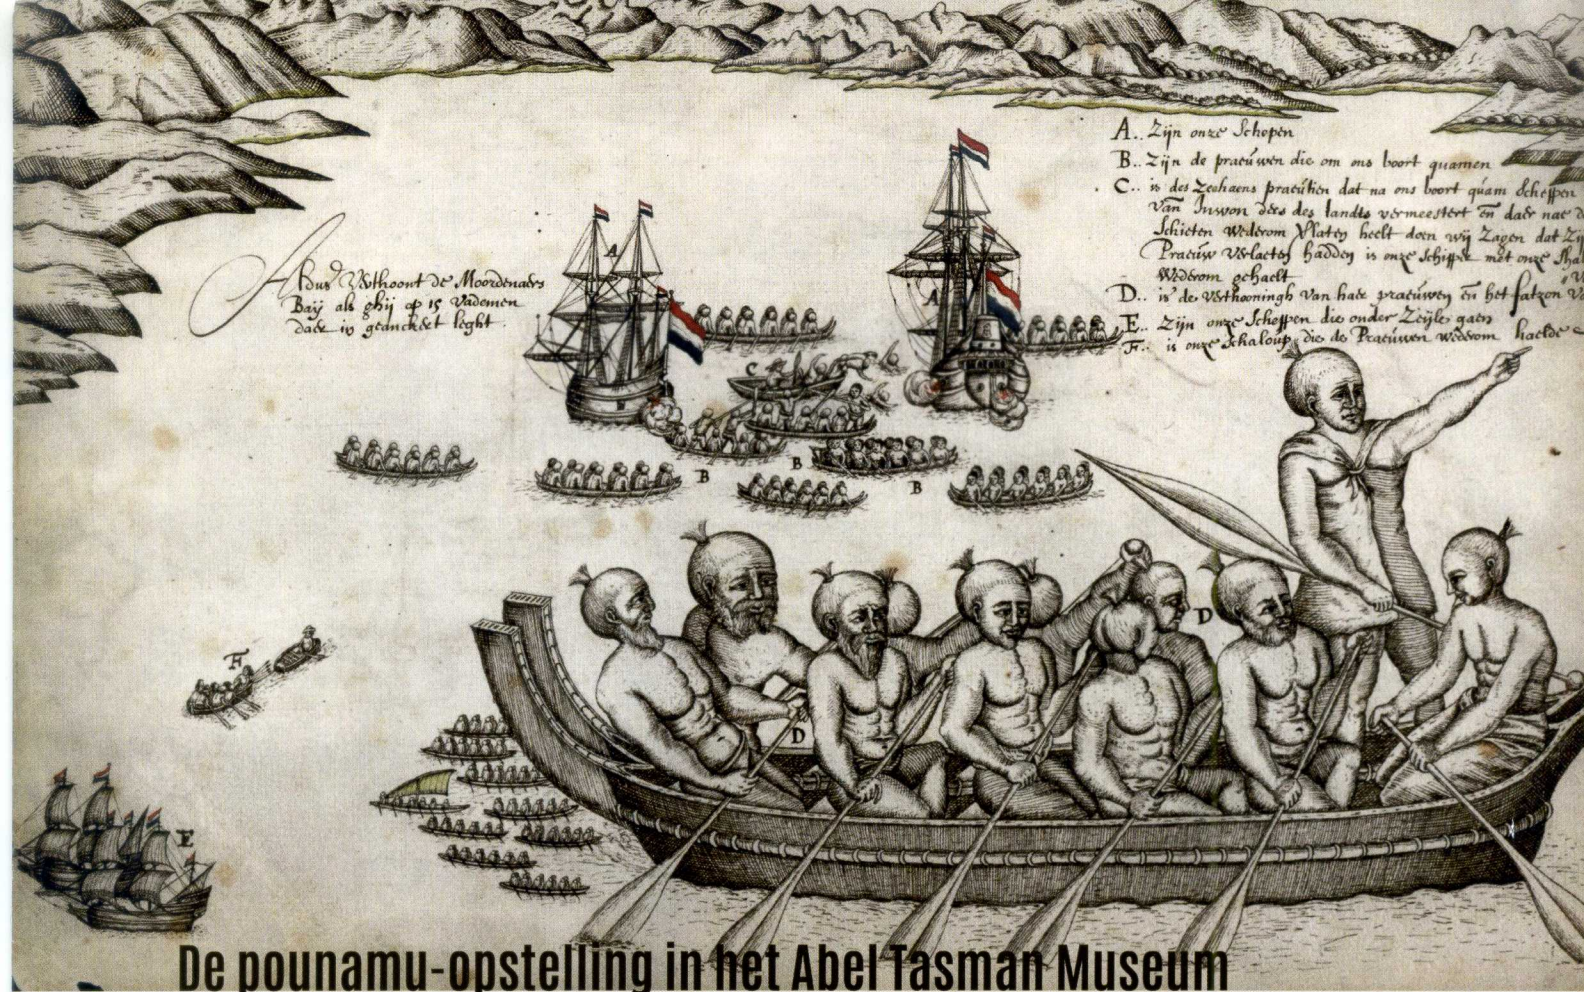 A.. Zijn onze Schepen
B.. Zijn de praeuwen die om ons boort quamen
C.. is des Zeehaens praeutien dat na ons boort quam Scheppen
van Inwon ders des landts vermeestert en daer nae d
Schieten wederom Verlaten heelt doen wij Zagen dat Zij
Praeuw verlaeten hadden is onze Schipper met onze Sha
wederom gehaelt
D.. is de verthooningh van haer praeuwen en het fatzon v
E.. Zijn onze Scheppen die onder Zeijle gaen
F.. is onze Schaloup die de Praeuwen wederom haelde
Aldus Verthoont de Moordenaers
Baij als ghij op 15 vademen
daer in geanckert leght
A
A
C
B
B
B
D
D
F
E
De pounamu-opstelling in het Abel Tasman Museum